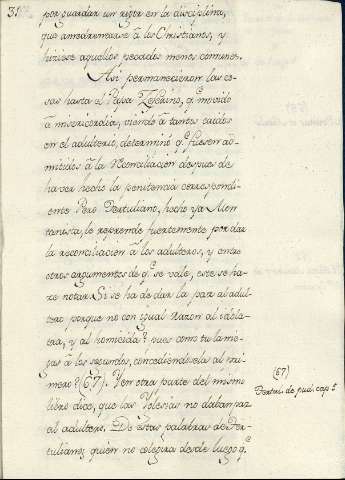 31
por guardar un rigor en la disciplina,
que amedrentase à los Christianos, y
hiziese aquellos pecados menos comunes.
Asi permanecieron las co-
sas hasta el Papa Zeferino, q.e movido
à misericordia, viendo à tantos caidos
en el adulterio, determinó q.e fuesen ad-
mitidos à la reconciliacion despues de
haver hecho la penitencia correspondi-
ente. Pero Tertuliano, hecho ya Mon-
tanista, le reprende fuertemente por dar
la reconciliacion à los adulteros, y entre
otros argumentos de q.e se vale, este se ha-
ze notar. Si se ha de dar la paz al adul-
tero porque no con igual razon al idola-
tra, y al homicida? pues como tu la nie-
gas à los segundos, concediendosela al pri-
mero? (67). Y en otra parte del mismo
libro dice, que las Yglesias no daban paz
al adultero. De estas palabras de Ter-
tuliano, quien no colegira desde luego q.e
(67)
Tertul. de pud. cap. 5